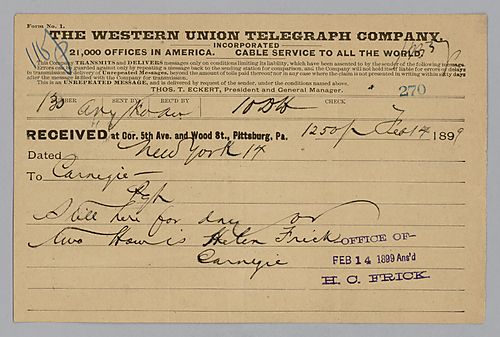 Form No. 1.
THE WESTERN UNION TELEGRAPH COMPANY.
INCORPORATED
21,000 OFFICES IN AMERICA. CABLE SERVICE TO ALL THE WORLD.
This Company TRANSMITS and DELIVERS messages only on conditions limiting its liability, which have been assented to by the sender of the following message.
Errors can be guarded against only by repeating a message back to the sending station for comparison, and the Company will not hold itself liable for errors or delays
in transmission or delivery of Unrepeated Messages, beyond the amount of tolls paid thereon, nor in any case where the claim is not presented in writing within sixty days
after the message is filed with the Company for transmission.
This is an UNREPEATED MESSAGE, and is delivered by request of the sender, under the conditions named above.
THOS. T. ECKERT, President and General Manager.
270
NUMBER SENT BY REC'D BY CHECK
RECEIVED at Cor. 5th Ave. and Wood St., Pittsburg, Pa. 1250p Feb 14 1899
Dated New York 14
To Carnegie
Pgh
Still here for day or
two How is Helen Frick
Carnegie
OFFICE OF
FEB 14 1899 Ans'd
H. C. FRICK.